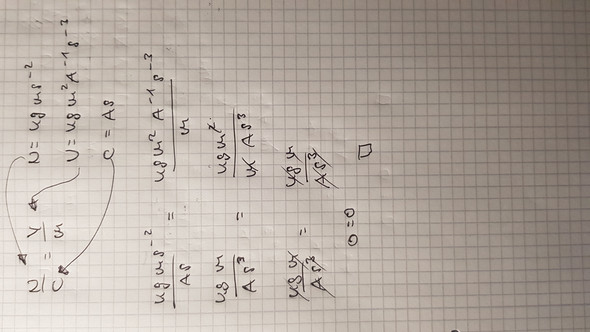 N/C = V/m   N = kgms⁻²
V = kgm²A⁻¹s⁻³
C = As
kgms⁻²/As = kgm²A⁻¹s⁻³/m
kgm/As³ = kgm²/mAs³
kgm/As³ = kgm/As³
0=0 □